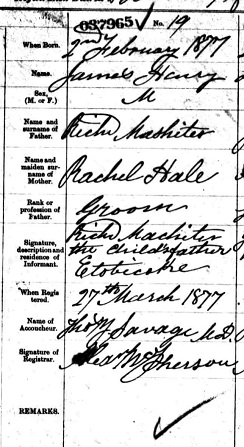 037965 No. 19
When Born. 2nd February 1877
Name. James Henry
Sex, (M. or F.) M
Name and surname of Father. Richd Mashiter
Name and maiden surname of Mother. Rachel Hale
Rank or profession of Father. Groom
Signature, description and residence of Informant. Richd Mashiter
the child's father
Etobicoke
When Registered. 27th March 1877
Name of Accoucheur. Thos Savage M.D.
Signature of Registrar. McPherson
REMARKS.